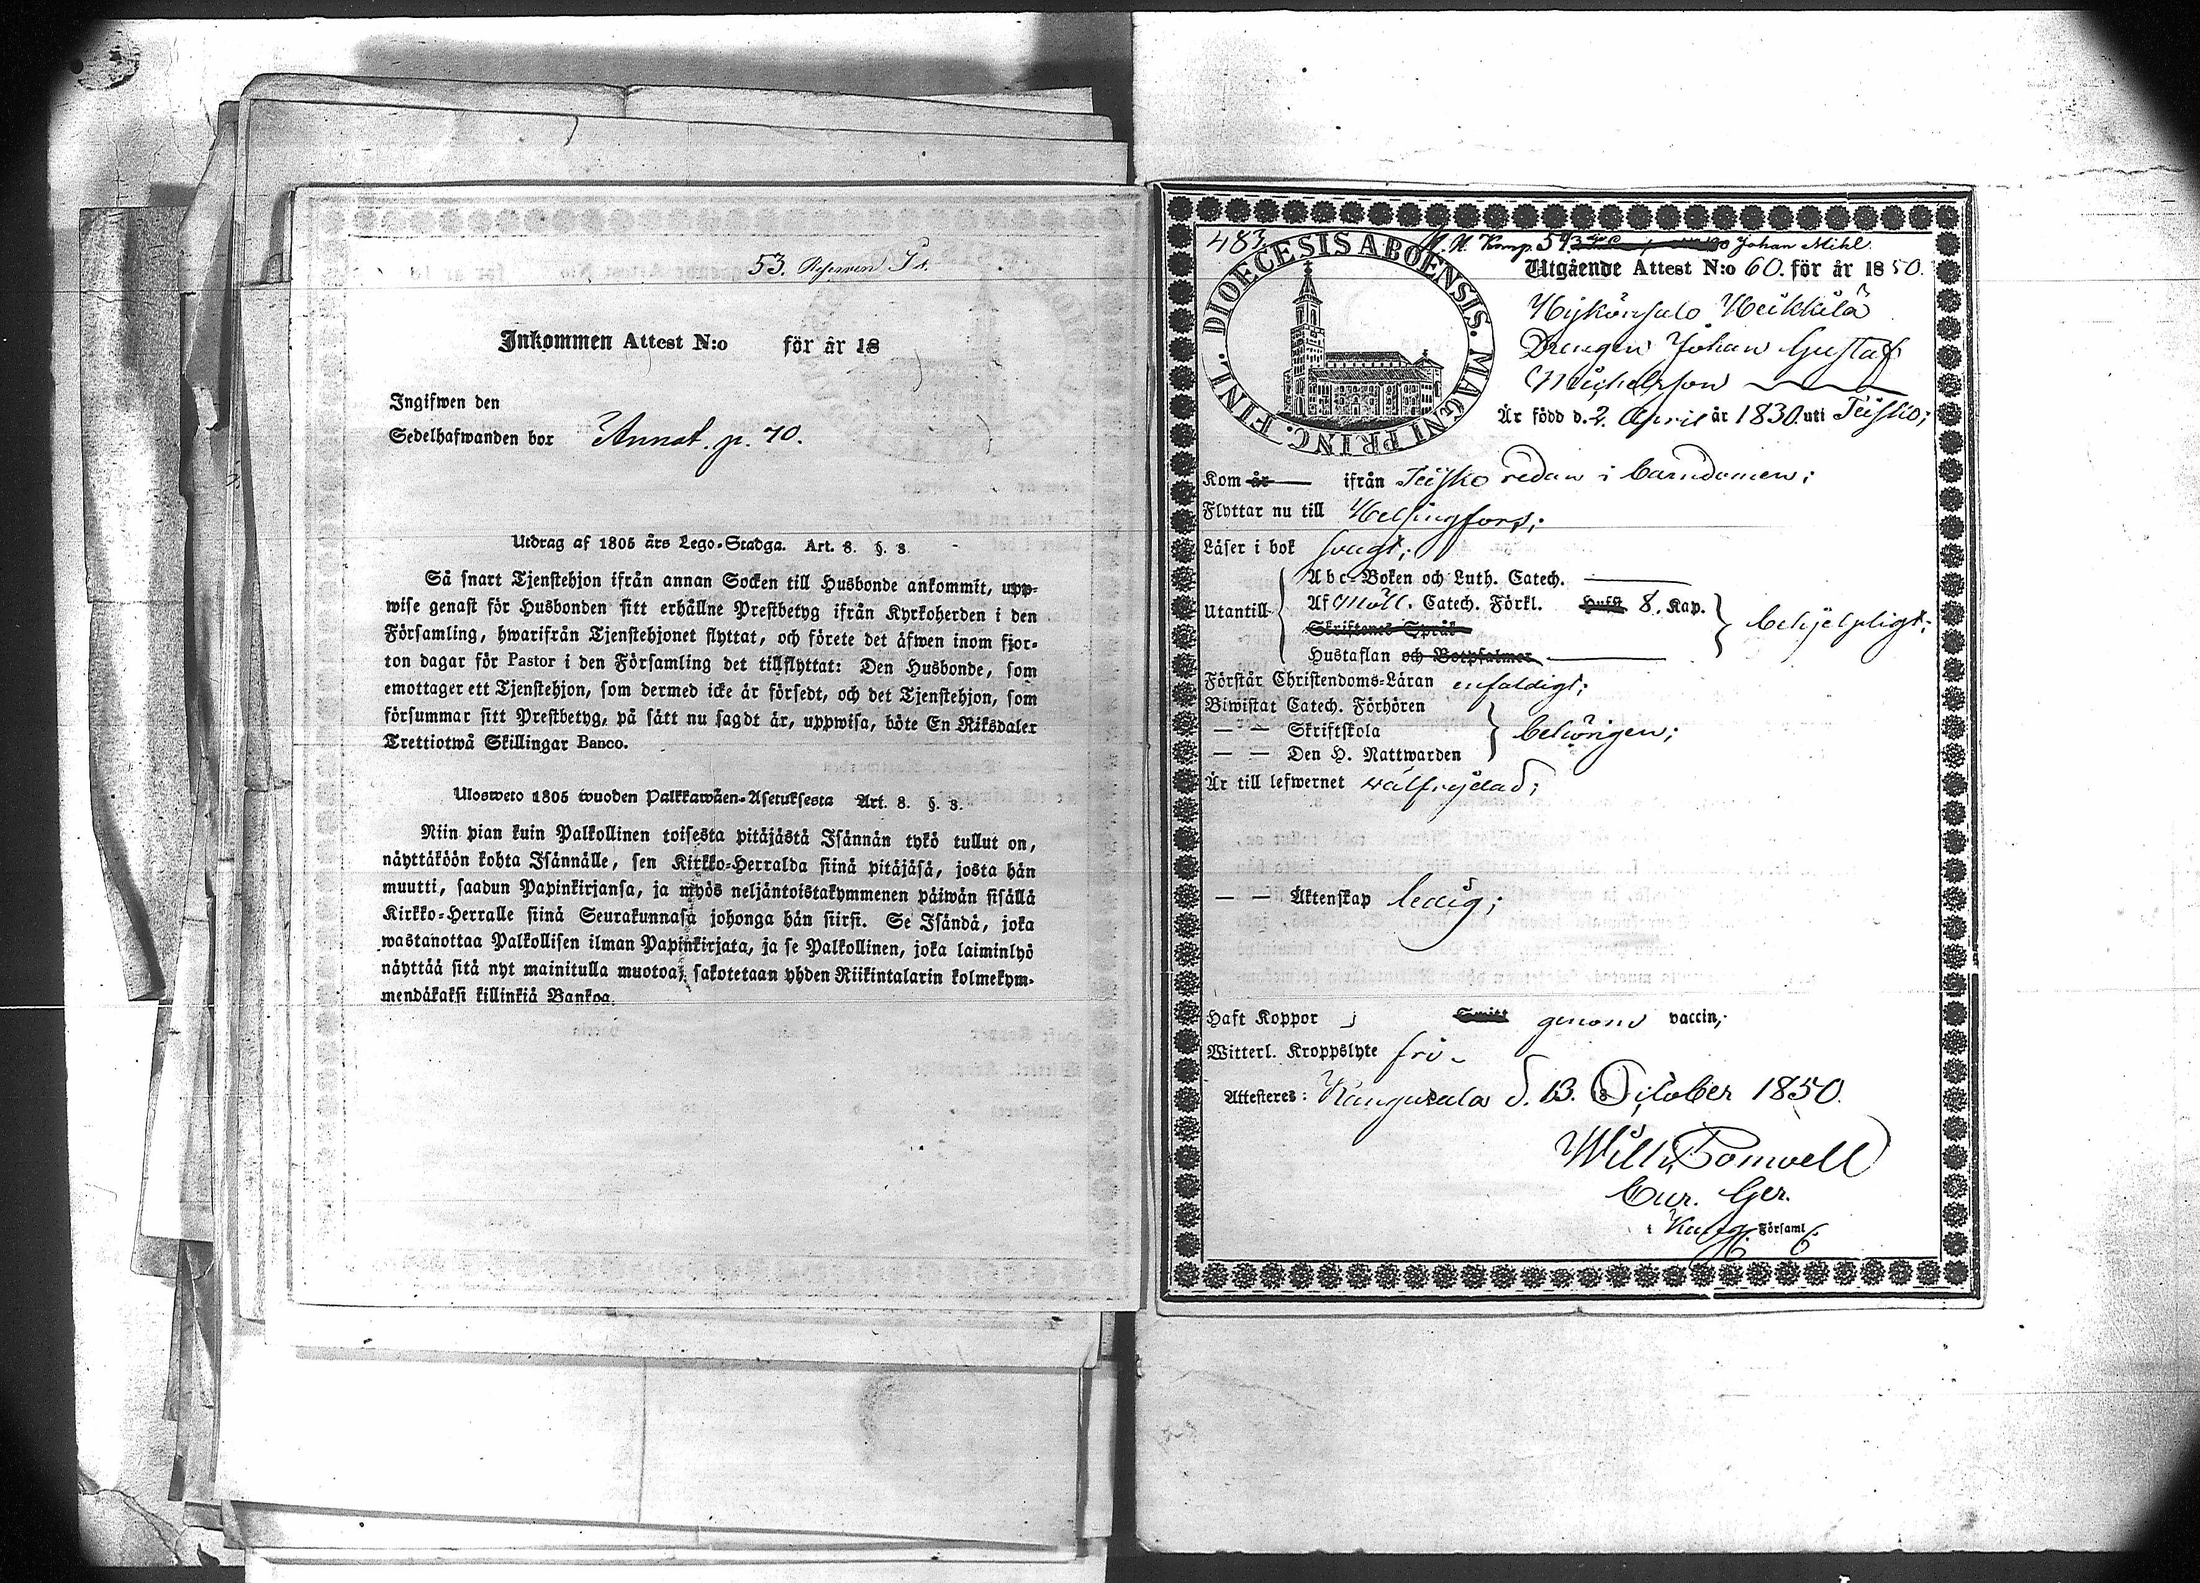 53.
Inkommen Attest N:o för år 18
Ingifwen den
Sedelhafwanden bor Annat. p. 70.
Utdrag af 1805 års Lego-Stadga. Art. 8. §. 8.
Så snart Tjenstehjon ifrån annan Socken till Husbonde ankommit, upp-
wise genast för Husbonden sitt erhållne Prestbetyg ifrån Kyrkoherden i den
Församling, hwarifrån Tjenstehjonet flyttat, och förete det äfwen inom fjor-
ton dagar för Pastor i den Församling det tillflyttat: Den Husbonde, som
emottager ett Tjenstehjon, som dermed icke är försedt, och det Tjenstehjon, som
försummar sitt Prestbetyg, på sätt nu sagdt är, uppwisa, böte En Riksdaler
Trettiotwå Skillingar Banco.
Ulosweto 1805 wuoden Palkkawäen-Asetuksesta Art. 8. §. 8.
Niin pian kuin Palkollinen toisesta pitäjästä Isännän tykö tullut on,
näyttäköön kohta Isännälle, sen Kirkko-Herralda siinä pitäjäsä, josta hän
muutti, saadun Papinkirjansa, ja myös neljäntoistakymmenen päiwän sisällä
Kirkko-Herralle siinä Seurakunnasa johonga hän siirsi. Se Isändä, joka
wastanottaa Palkollisen ilman Papinkirjata, ja se Palkollinen, joka laiminlyö
näyttää sitä nyt mainitulla muotoa, sakotetaan yhden Riikintalarin kolmekym-
mendäkaksi killinkiä Bankoa.
483. Komp. 593 Johan Mihl.
DIOECESIS ABOENSIS. MAGNI PRINC. FINL.
Utgående Attest N:o 60. för år 1850.
Heikkilä
Drengen Johan Gustaf
Michelsson
Är född d. 2. April år 1830. uti Teisko;
Kom år ifrån Teisko redan i barndomen;
Flyttar nu till Helsingfors;
Läser i bok svagt;
Utantill
Abc-Boken och Luth. Catech.
Af Möll. Catech. Förkl. Hust 8. Kap.
Skriftenes Språk
Hustaflan och Botpsalmer
behjelpligt;
Förstår Christendoms-Läran enfaldigt;
Biwistat Catech. Förhören
— — Skriftskola
— — Den H. Nattwarden
behörigen;
Är till lefwernet wälfrejdad;
— — Äktenskap ledig;
Haft Koppor genom vaccin;
Witterl. Kroppslyte fri
Attesteres: Kangasala d. 13. October 1850.
Wilh.
Cur. Ger.
i Kang. Församl.